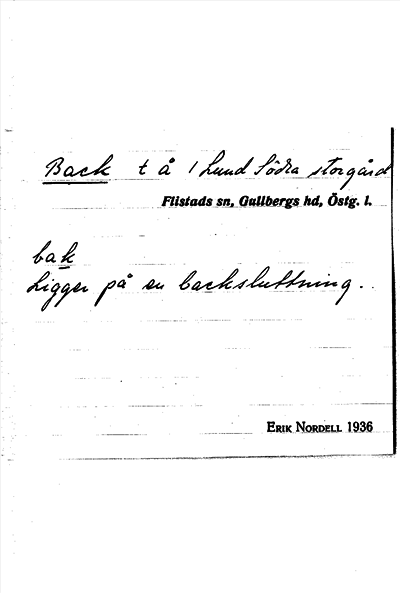 Back t å / Lund Södra storgård
Flistads sn, Gullbergs hd, Östg. l.
bak
Ligger på en backsluttning.
ERIK NORDELL 1936